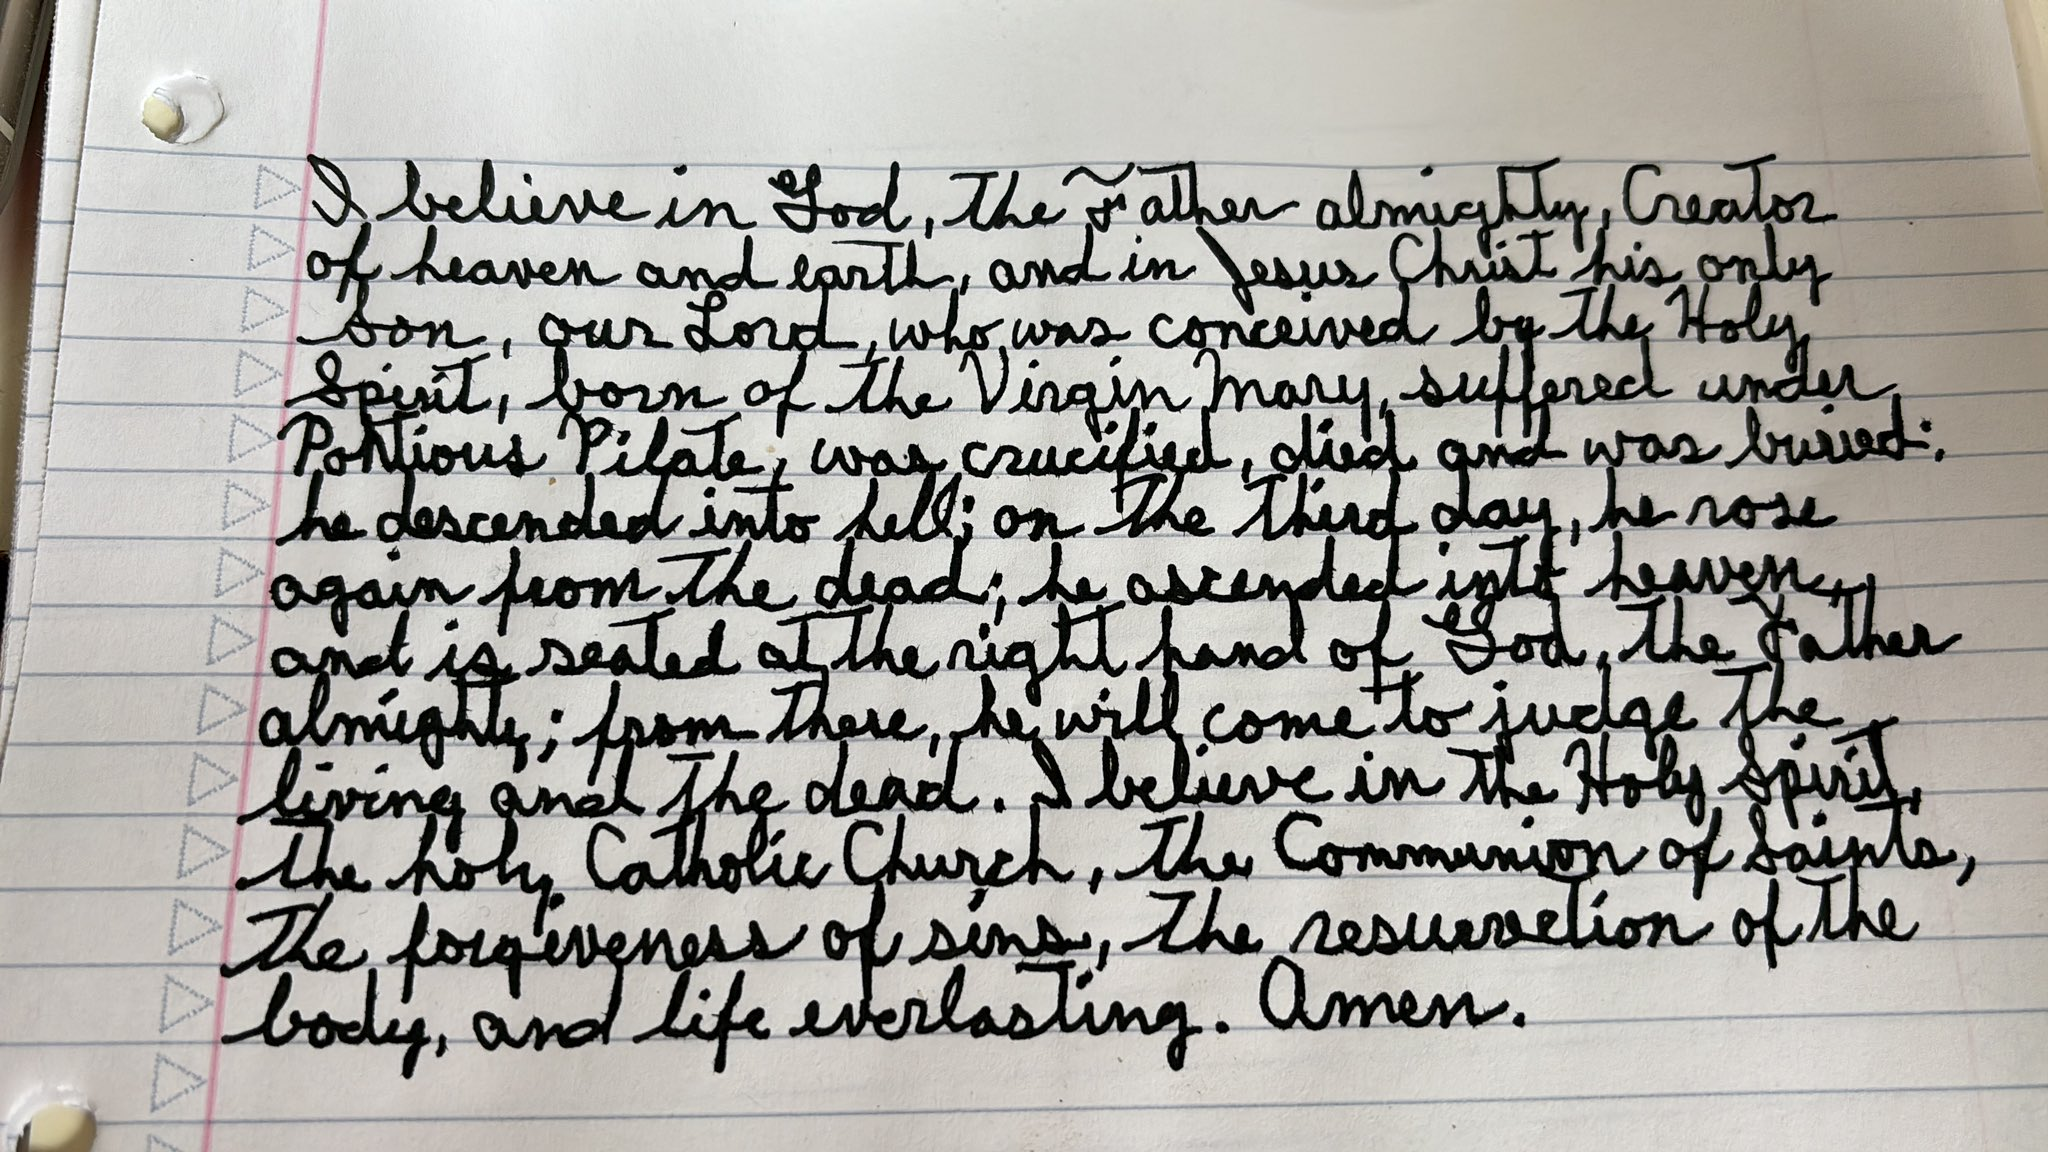 I believe in God, the Father almighty, Creator
of heaven and earth, and in Jesus Christ his only
Son, our Lord, who was conceived by the Holy
Spirit, born of the Virgin Mary, suffered under
Pontious Pilate, was crucified, died and was buried;
he descended into hell; on the third day, he rose
again from the dead; he ascended into heaven,
and is seated at the right hand of God, the Father
almighty; from there, he will come to judge the
living and the dead. I believe in the Holy Spirit,
the holy Catholic Church, the Communion of Saints,
the forgiveness of sins, the resurrection of the
body, and life everlasting. Amen.